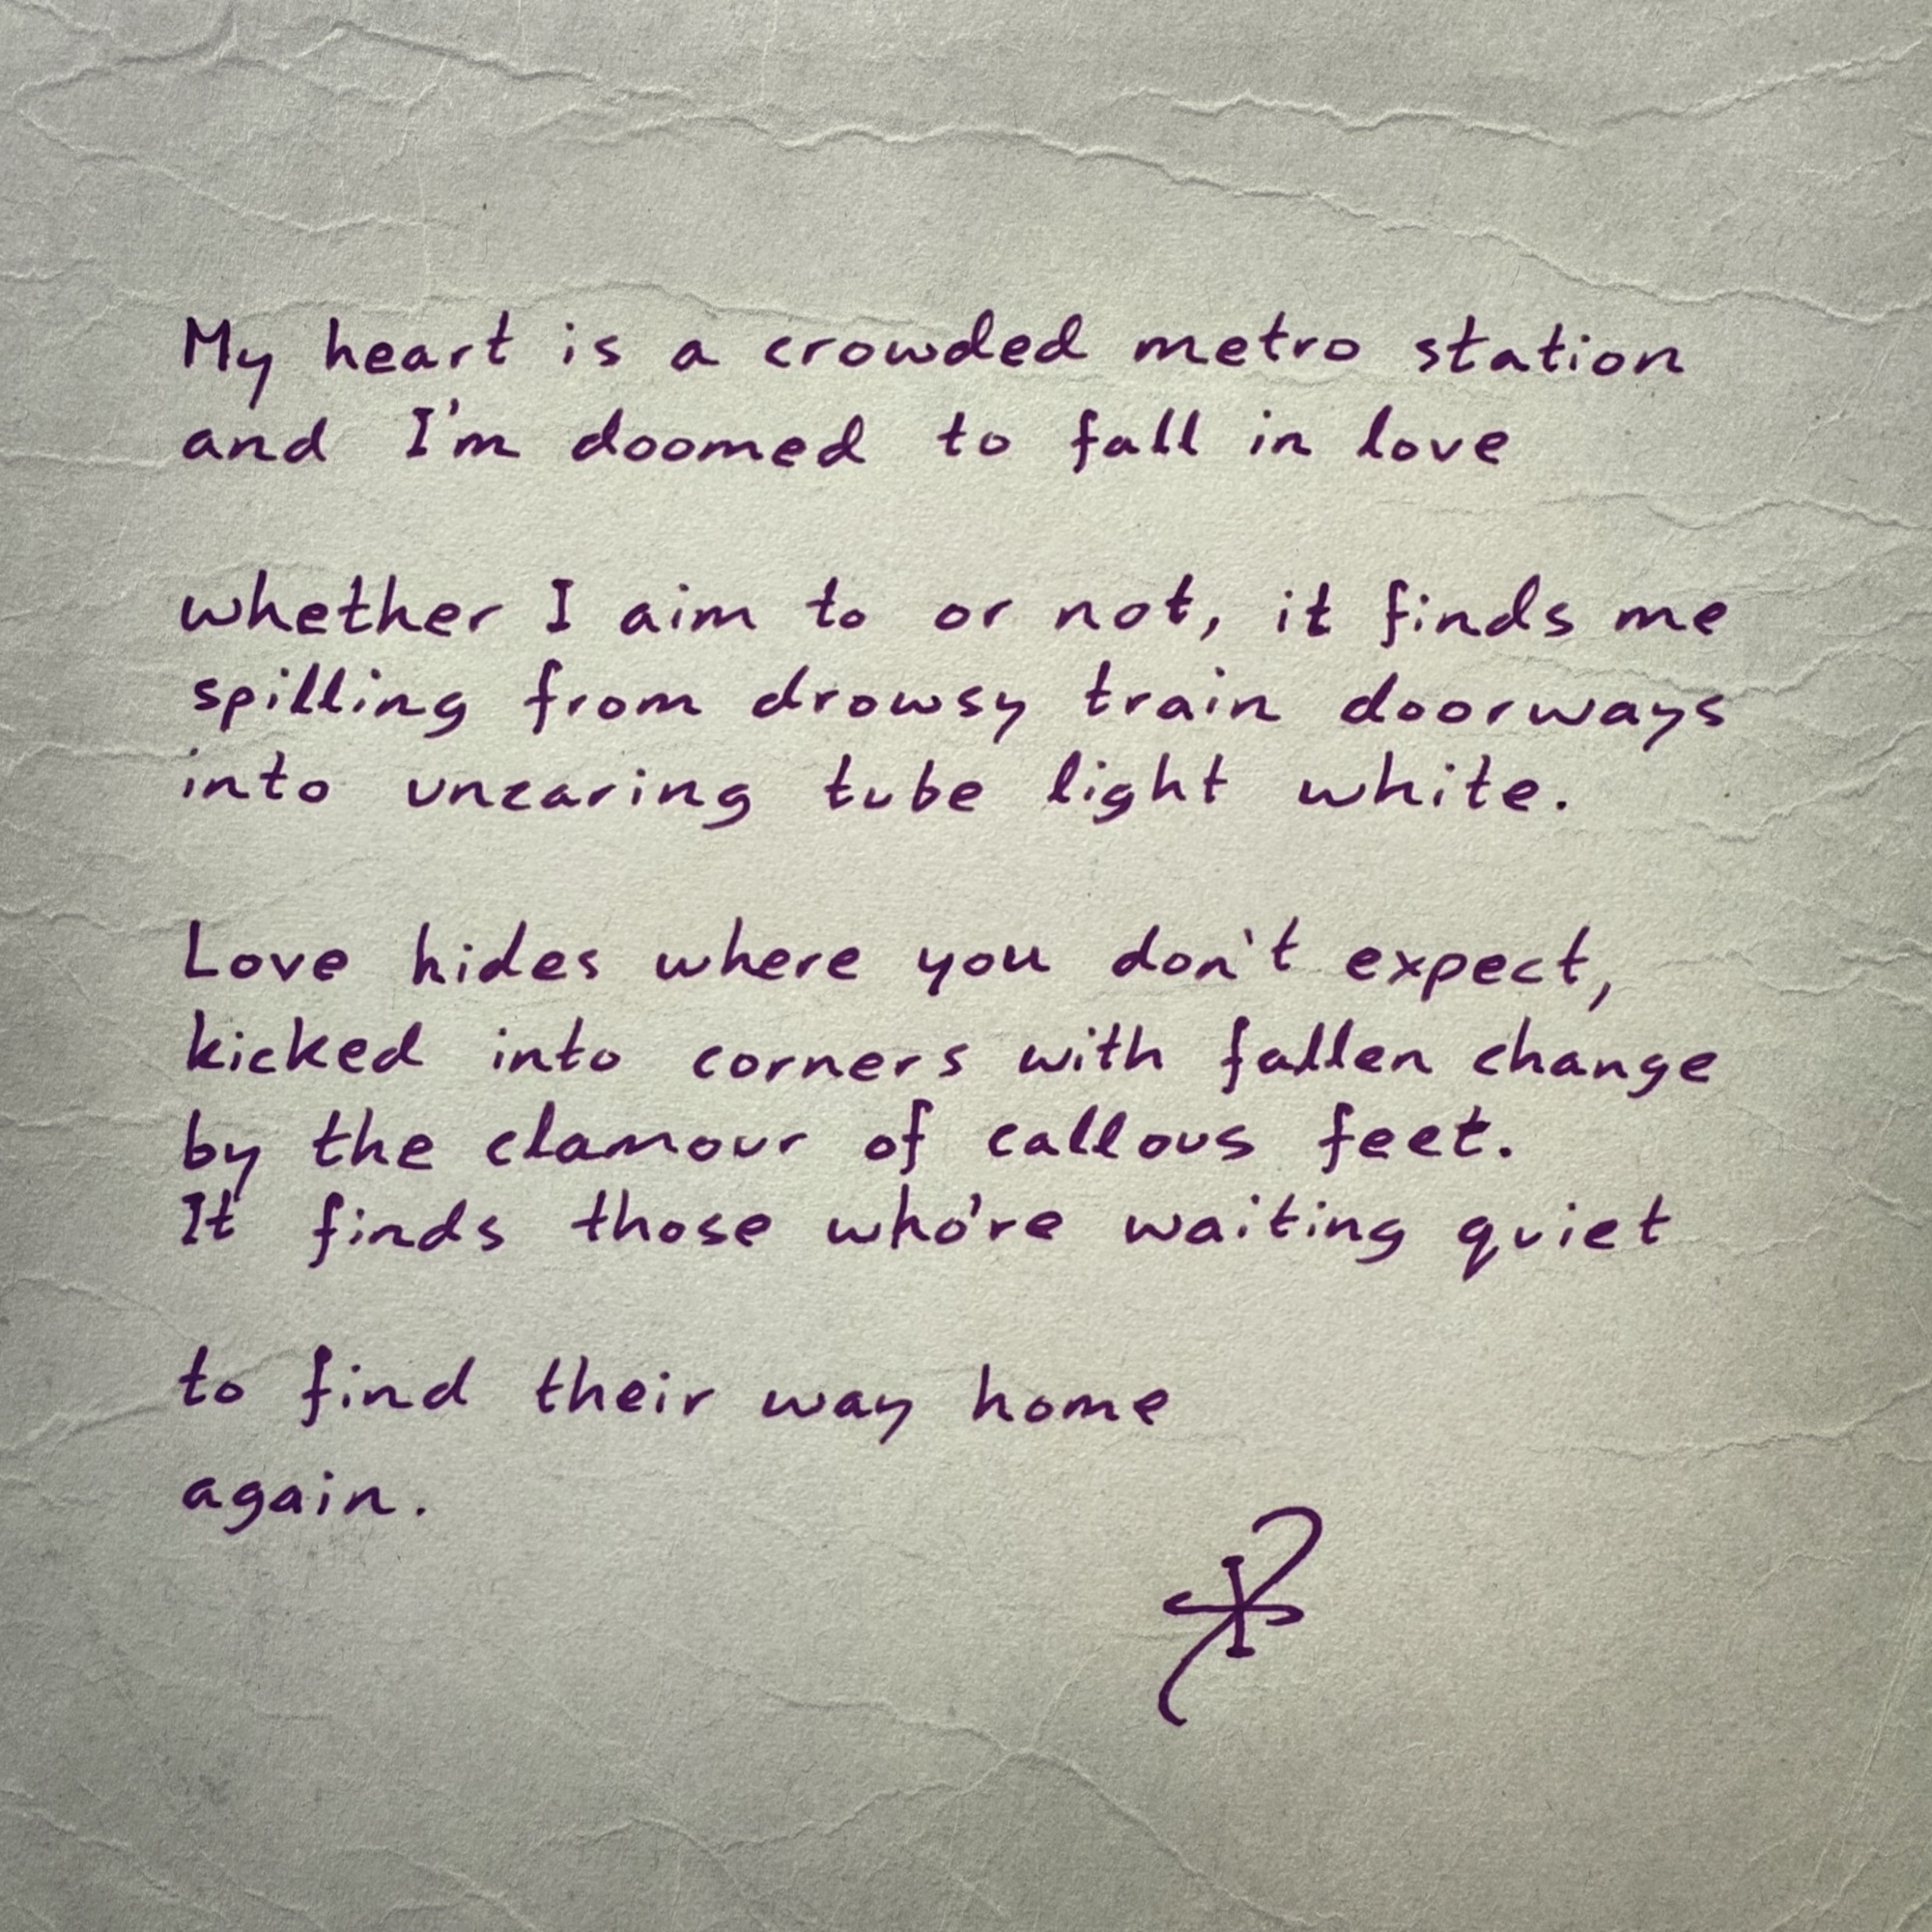 My heart is a crowded metro station
and I'm doomed to fall in love
whether I aim to or not, it finds me
spilling from drowsy train doorways
into uncaring tube light white.
Love hides where you don't expect,
kicked into corners with fallen change
by the clamour of callous feet.
It finds those who're waiting quiet
to find their way home
again.